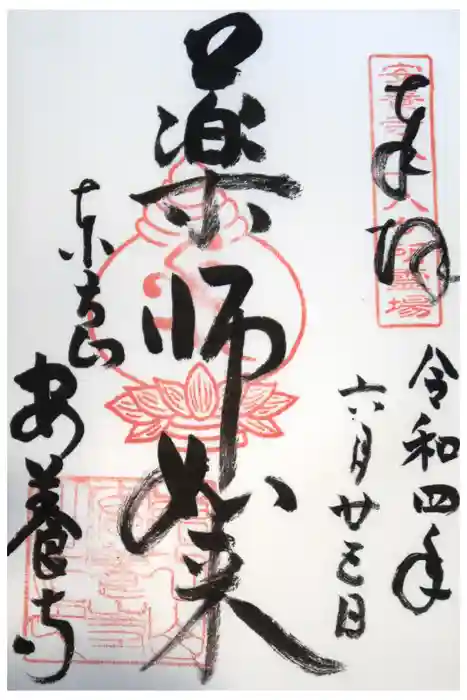 奉拝
令和四年
六月廿三日
薬師如来
東方山
安養寺